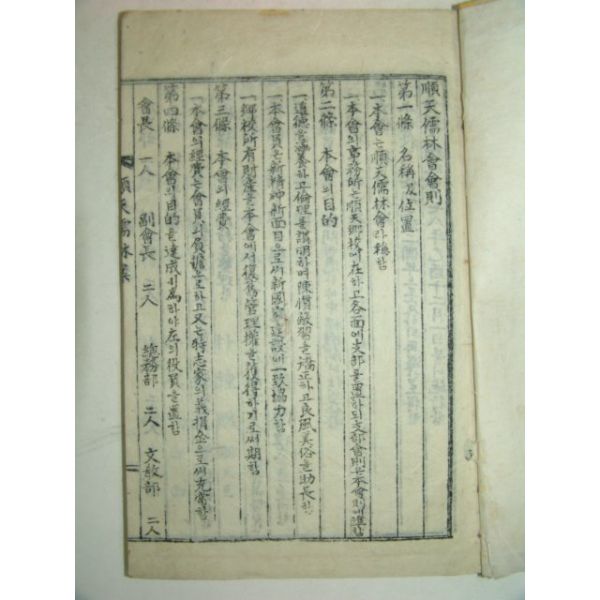 順天儒林會會則
第一條 名稱及位置
一本會는順天儒林會라稱함
一本會의事務所는順天鄕校에在하고各面에支部를置하되支部會則은本會則에準함
第二條 本會의目的
一道德을涵養하고倫理를講明하며陳慣敝習을矯正하고良風美俗을助長함
一本會員은新精神新面目으로써新國家建設에一致協力함
一鄕校所有財產을本會에서復舊管理權을獲得하기로써期함
第三條 本會의經費
一本會의經費는會員의負擔으로하고又는特志家의義捐金으로써充當함
第四條 本會의目的을達成하기爲하야左의役員을置함
會長 一人 副會長 二人 總務部 二人 文敎部 二人
順天儒林案